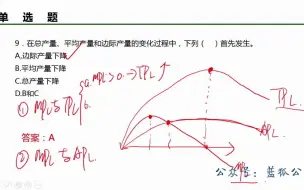 单 选 题
9．在总产量、平均产量和边际产量的变化过程中，下列（ ）首先发生。
A,边际产量下降
B,平均产量下降
C,总产量下降
D,B和C
① MPL与TPL { a. MPL > 0 → TPL ↑
b.
答案：A
② MPL与APL
TPL
APL
MPL
公众号：蓝狐公